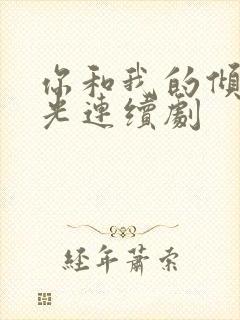 你和我的傾
光連續劇
經年蕭索